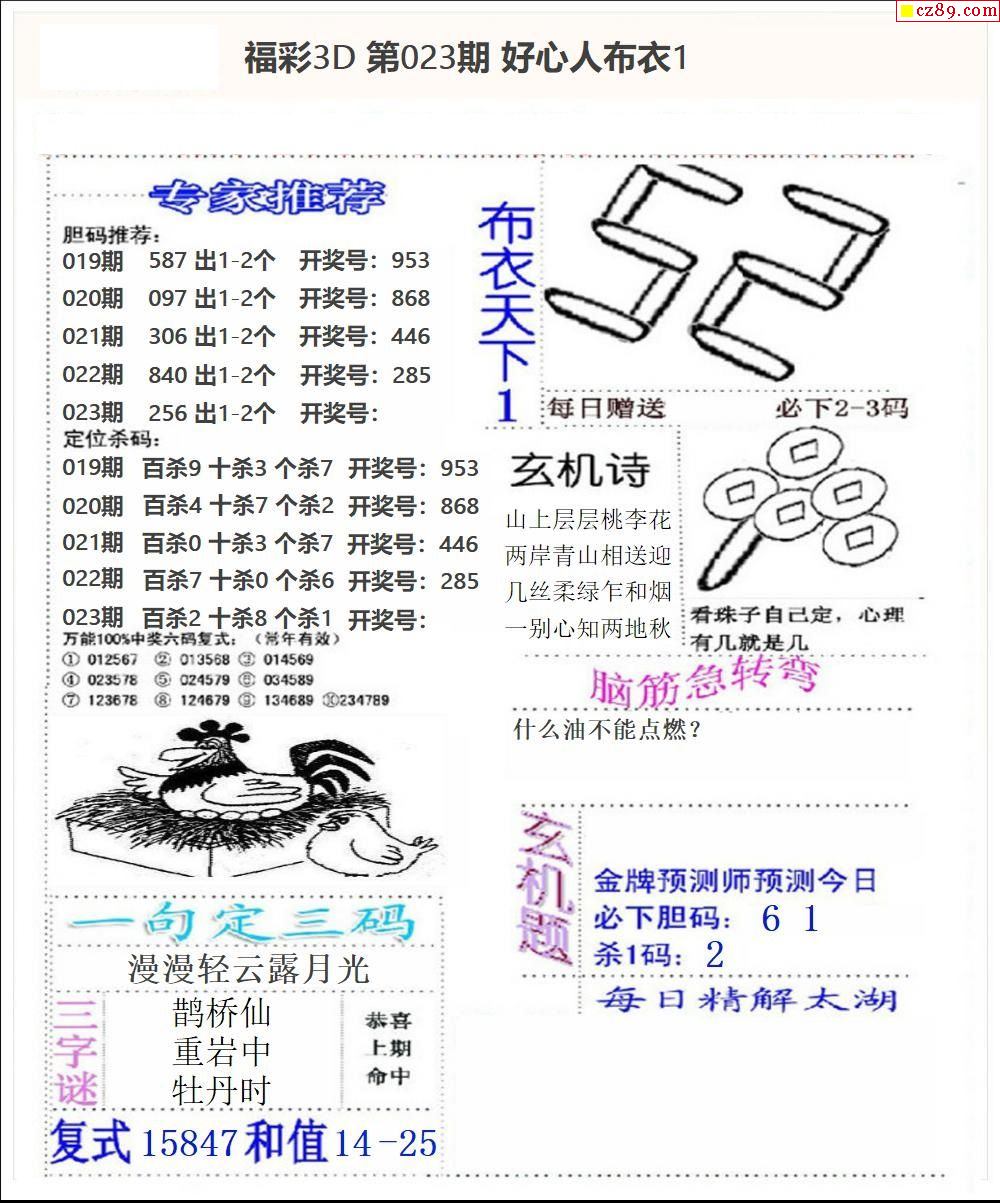 cz89.com
福彩3D 第023期 好心人布衣1
专家推荐
胆码推荐:
019期 587 出1-2个 开奖号: 953
020期 097 出1-2个 开奖号: 868
021期 306 出1-2个 开奖号: 446
022期 840 出1-2个 开奖号: 285
023期 256 出1-2个 开奖号:
定位杀码:
019期 百杀9 十杀3 个杀7 开奖号: 953
020期 百杀4 十杀7 个杀2 开奖号: 868
021期 百杀0 十杀3 个杀7 开奖号: 446
022期 百杀7 十杀0 个杀6 开奖号: 285
023期 百杀2 十杀8 个杀1 开奖号:
万能100%中奖六码复式: (常年有效)
① 012567 ② 013568 ③ 014569
④ 023578 ⑤ 024579 ⑥ 034589
⑦ 123678 ⑧ 124679 ⑨ 134689 ⑩234789
一句定三码
漫漫轻云露月光
三字谜
鹊桥仙
重岩中
牡丹时
恭喜
上期
命中
复式 15847 和值 14-25
布衣天下1
52
每日赠送 必下2-3码
玄机诗
山上层层桃李花
两岸青山相送迎
几丝柔绿乍和烟
一别心知两地秋
看珠子自己定，心理
有几就是几
脑筋急转弯
什么油不能点燃?
玄机题
金牌预测师预测今日
必下胆码: 6 1
杀1码: 2
每日精解太湖